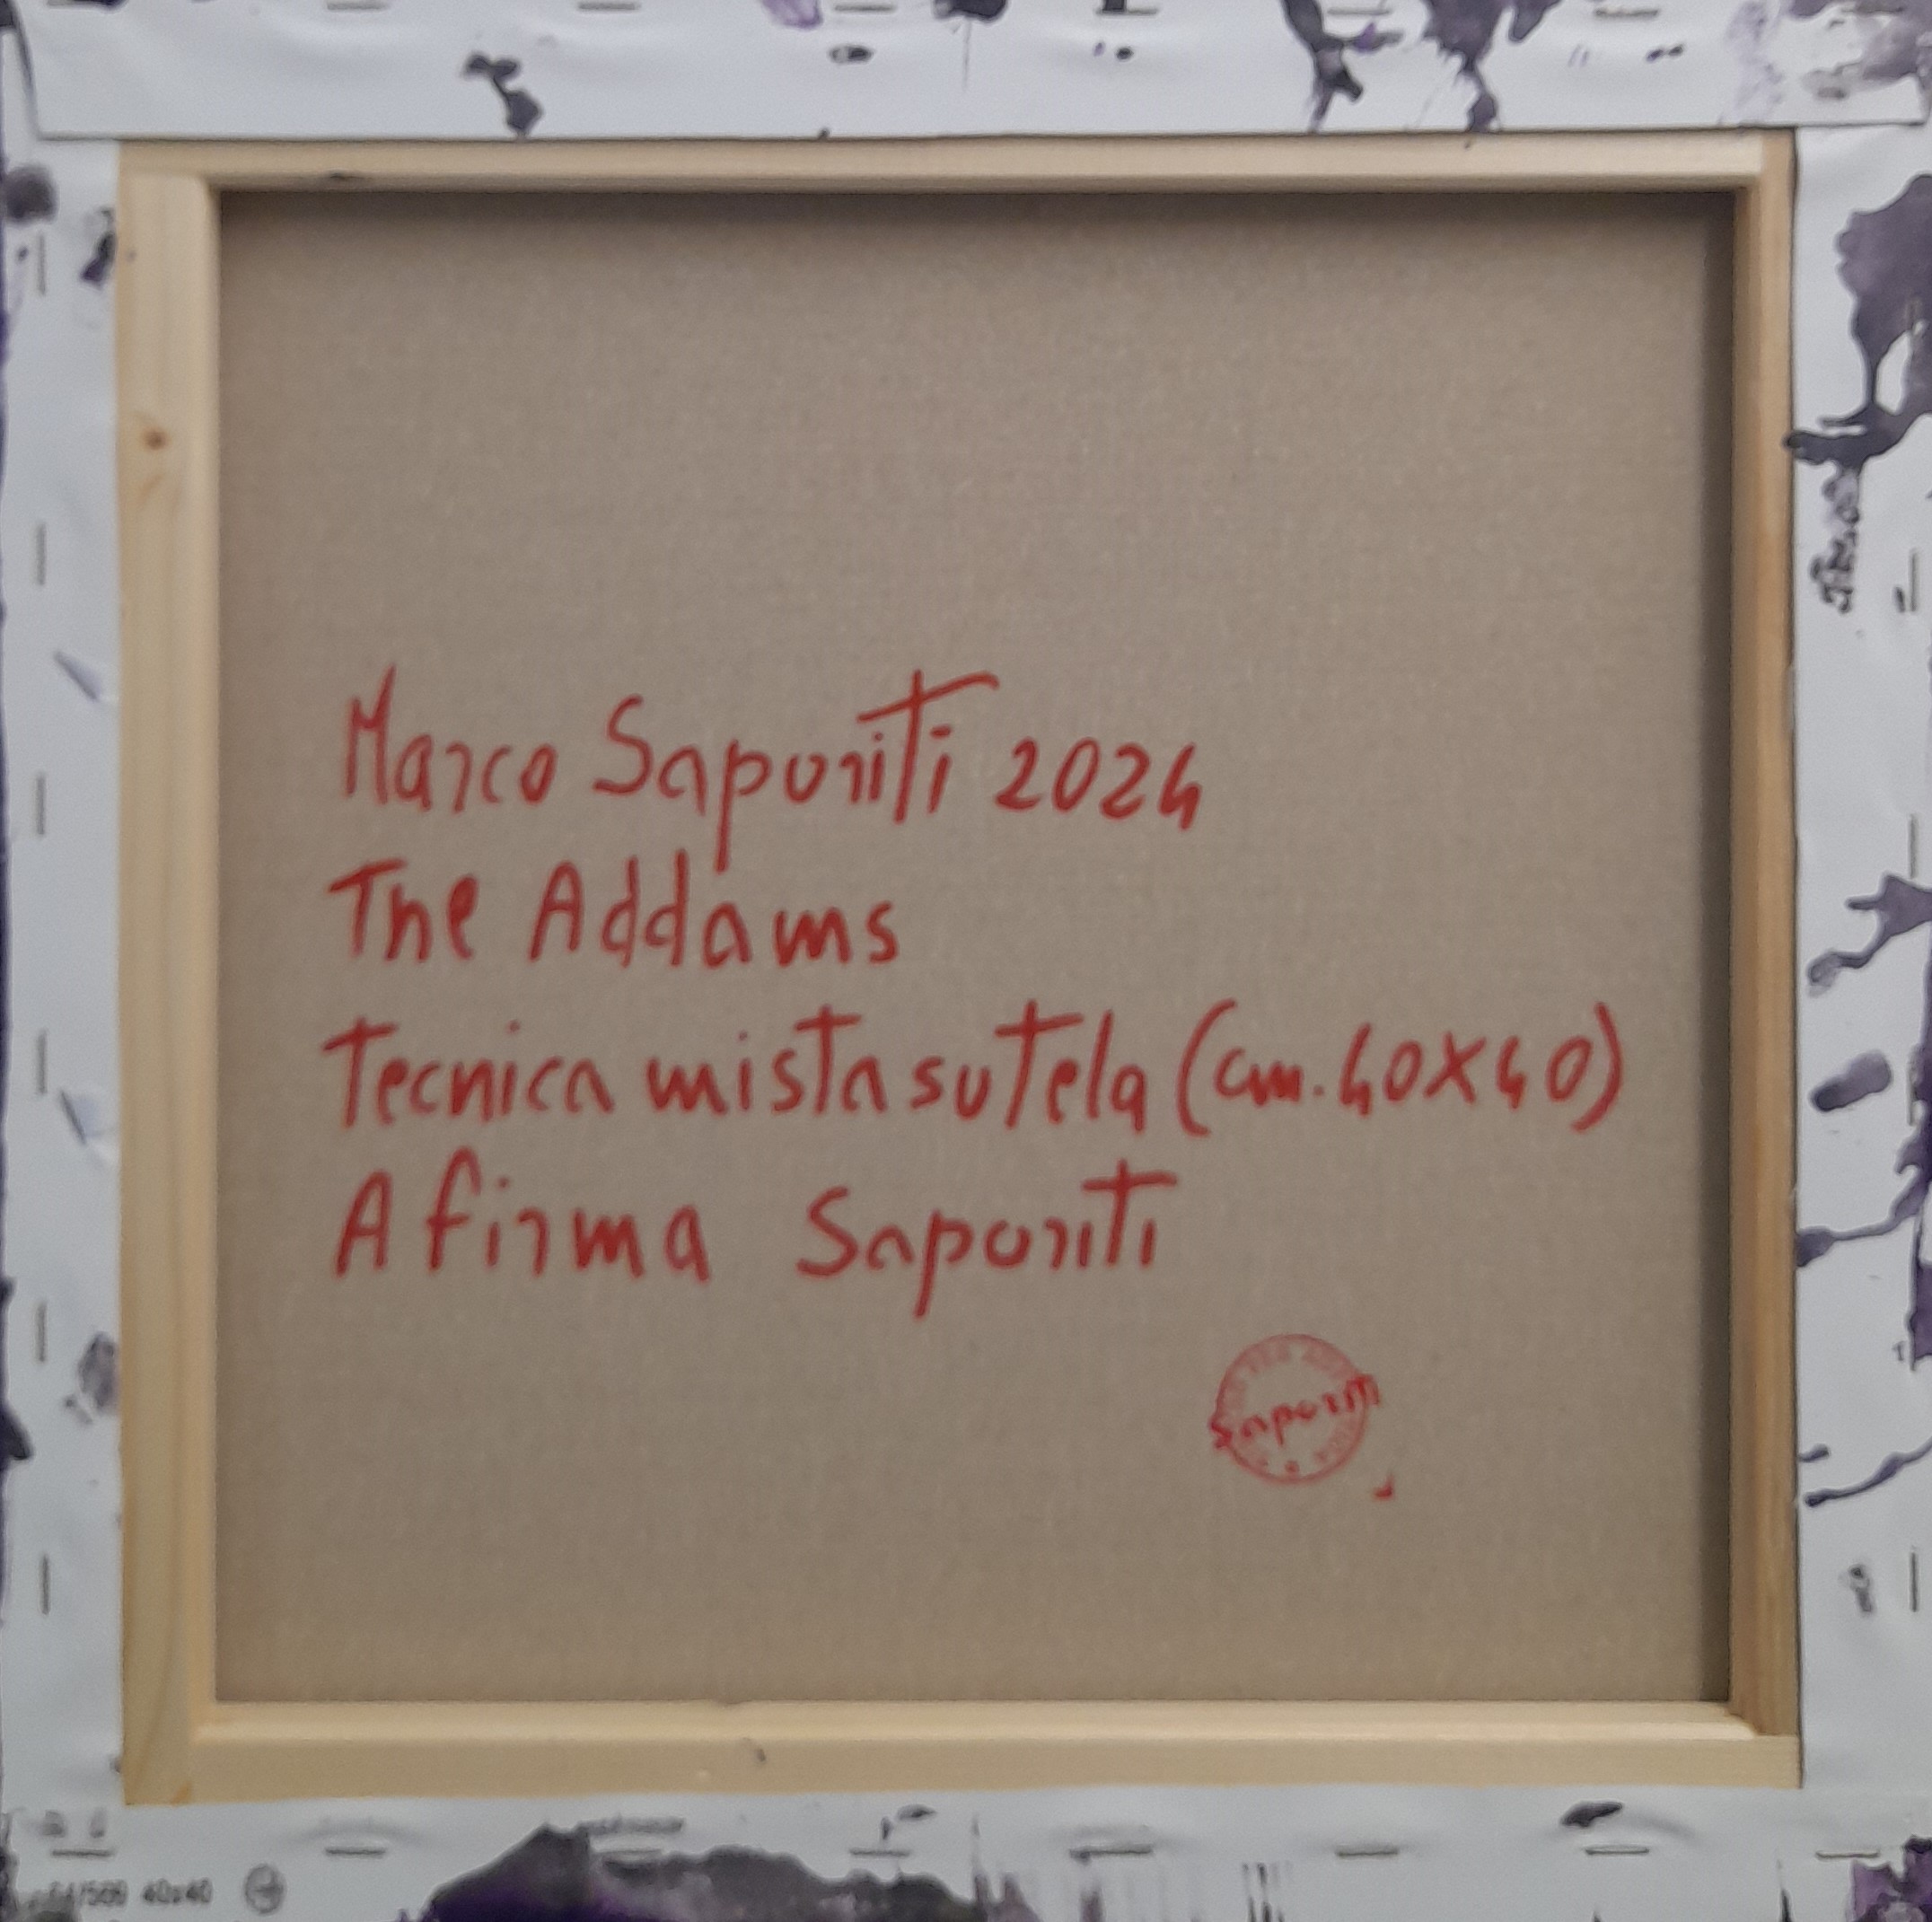 Marco Saporiti 2024
The Addams
Tecnica mista su tela (cm. 40x40)
A firma Saporiti
Saporiti
40x40